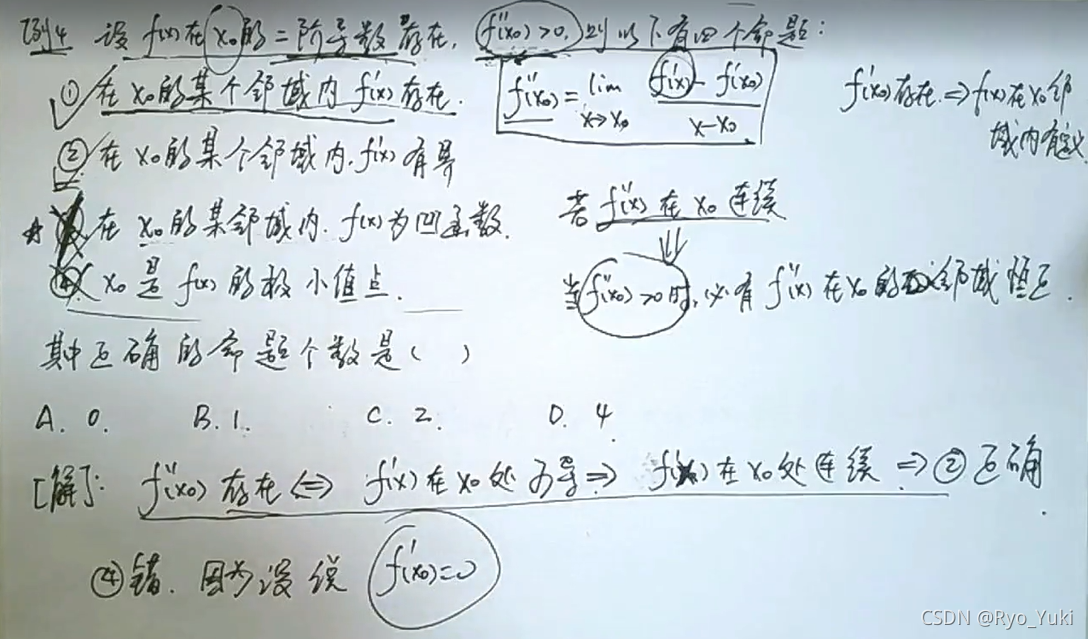 例4 设 f(x)在 x₀的二阶导数存在, f''(x₀)>0, 则以下有四个命题:
① 在 x₀的某个邻域内 f'(x)存在.
f''(x₀) = lim x→x₀ f'(x) - f'(x₀) / x-x₀
f'(x₀)存在 ⇒ f(x)在 x₀邻域内有定义
② 在 x₀的某个邻域内. f'(x)有界
在 x₀的某邻域内. f(x)为凹函数.
若 f''(x)在 x₀连续
⇓
④ x₀是 f(x)的极小值点.
当 f''(x₀)>0时, 必有 f''(x)在 x₀的邻域恒正.
其中正确的命题个数是( )
A. 0. B. 1. C. 2. D. 4
[解]: f''(x₀)存在 ⇔ f'(x)在 x₀处可导 ⇒ f'(x)在 x₀处连续 ⇒ ②正确.
④错. 因为没说 f'(x₀)=0
CSDN @Ryo_Yuki